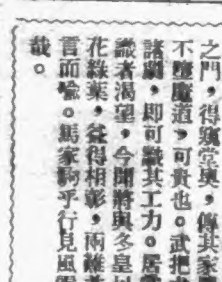 之門，得窺堂奧，傳其家
不墮魔道，可貴也。武把
諸劇，卽可識其工力。居
識者渴望，今聞將與冬皇
花綠葉，益得相彰，兩雄
言而喻。馬家駒乎行見風
哉。